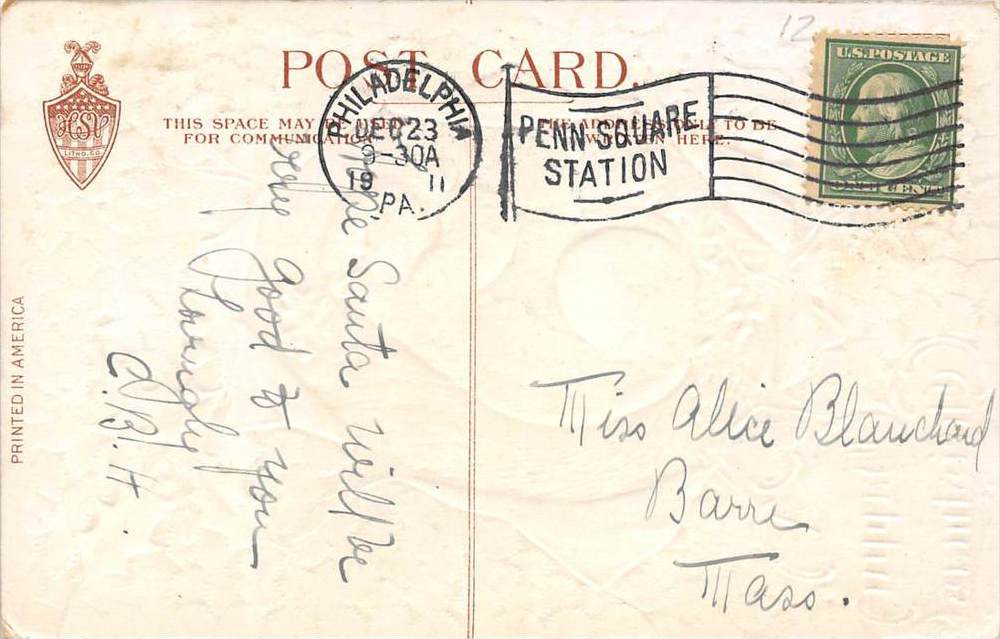 12
POST CARD.
U.S. POSTAGE
ONE CENT
PHILADELPHIA
DEC 23
-30A
19 11
PA.
PENN SQUARE
STATION
THIS SPACE MAY BE USED
FOR COMMUNICATION
THE ADDRESS ONLY TO BE
WRITTEN HERE.
HSV
LITHO. CO.
PRINTED IN AMERICA
Hope Santa will be
very good to you
Lovingly
C. B. H.
Miss Alice Blanchard
Barre
Mass.